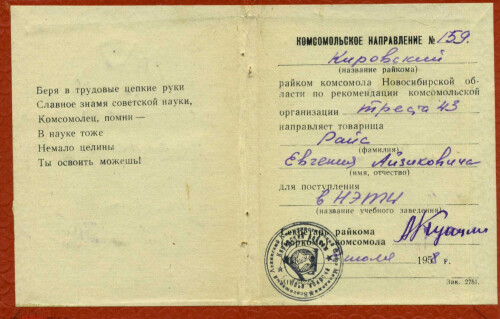 Беря в трудовые цепкие руки
Славное знамя советской науки,
Комсомолец, помни—
В науке тоже
Немало целины
Ты освоить можешь!
КОМСОМОЛЬСКОЕ НАПРАВЛЕНИЕ № 159.
Кировский
(название райкома)
райком комсомола Новосибирской об-
ласти по рекомендации комсомольской
организации треста 43
направляет товарища
Райс
(фамилия)
Евгения Айзиковича
(имя, отчество)
для поступления
в НЭТИ
(название учебного заведения)
райкома
комсомола
июля 1958 г.
Зак. 2781.